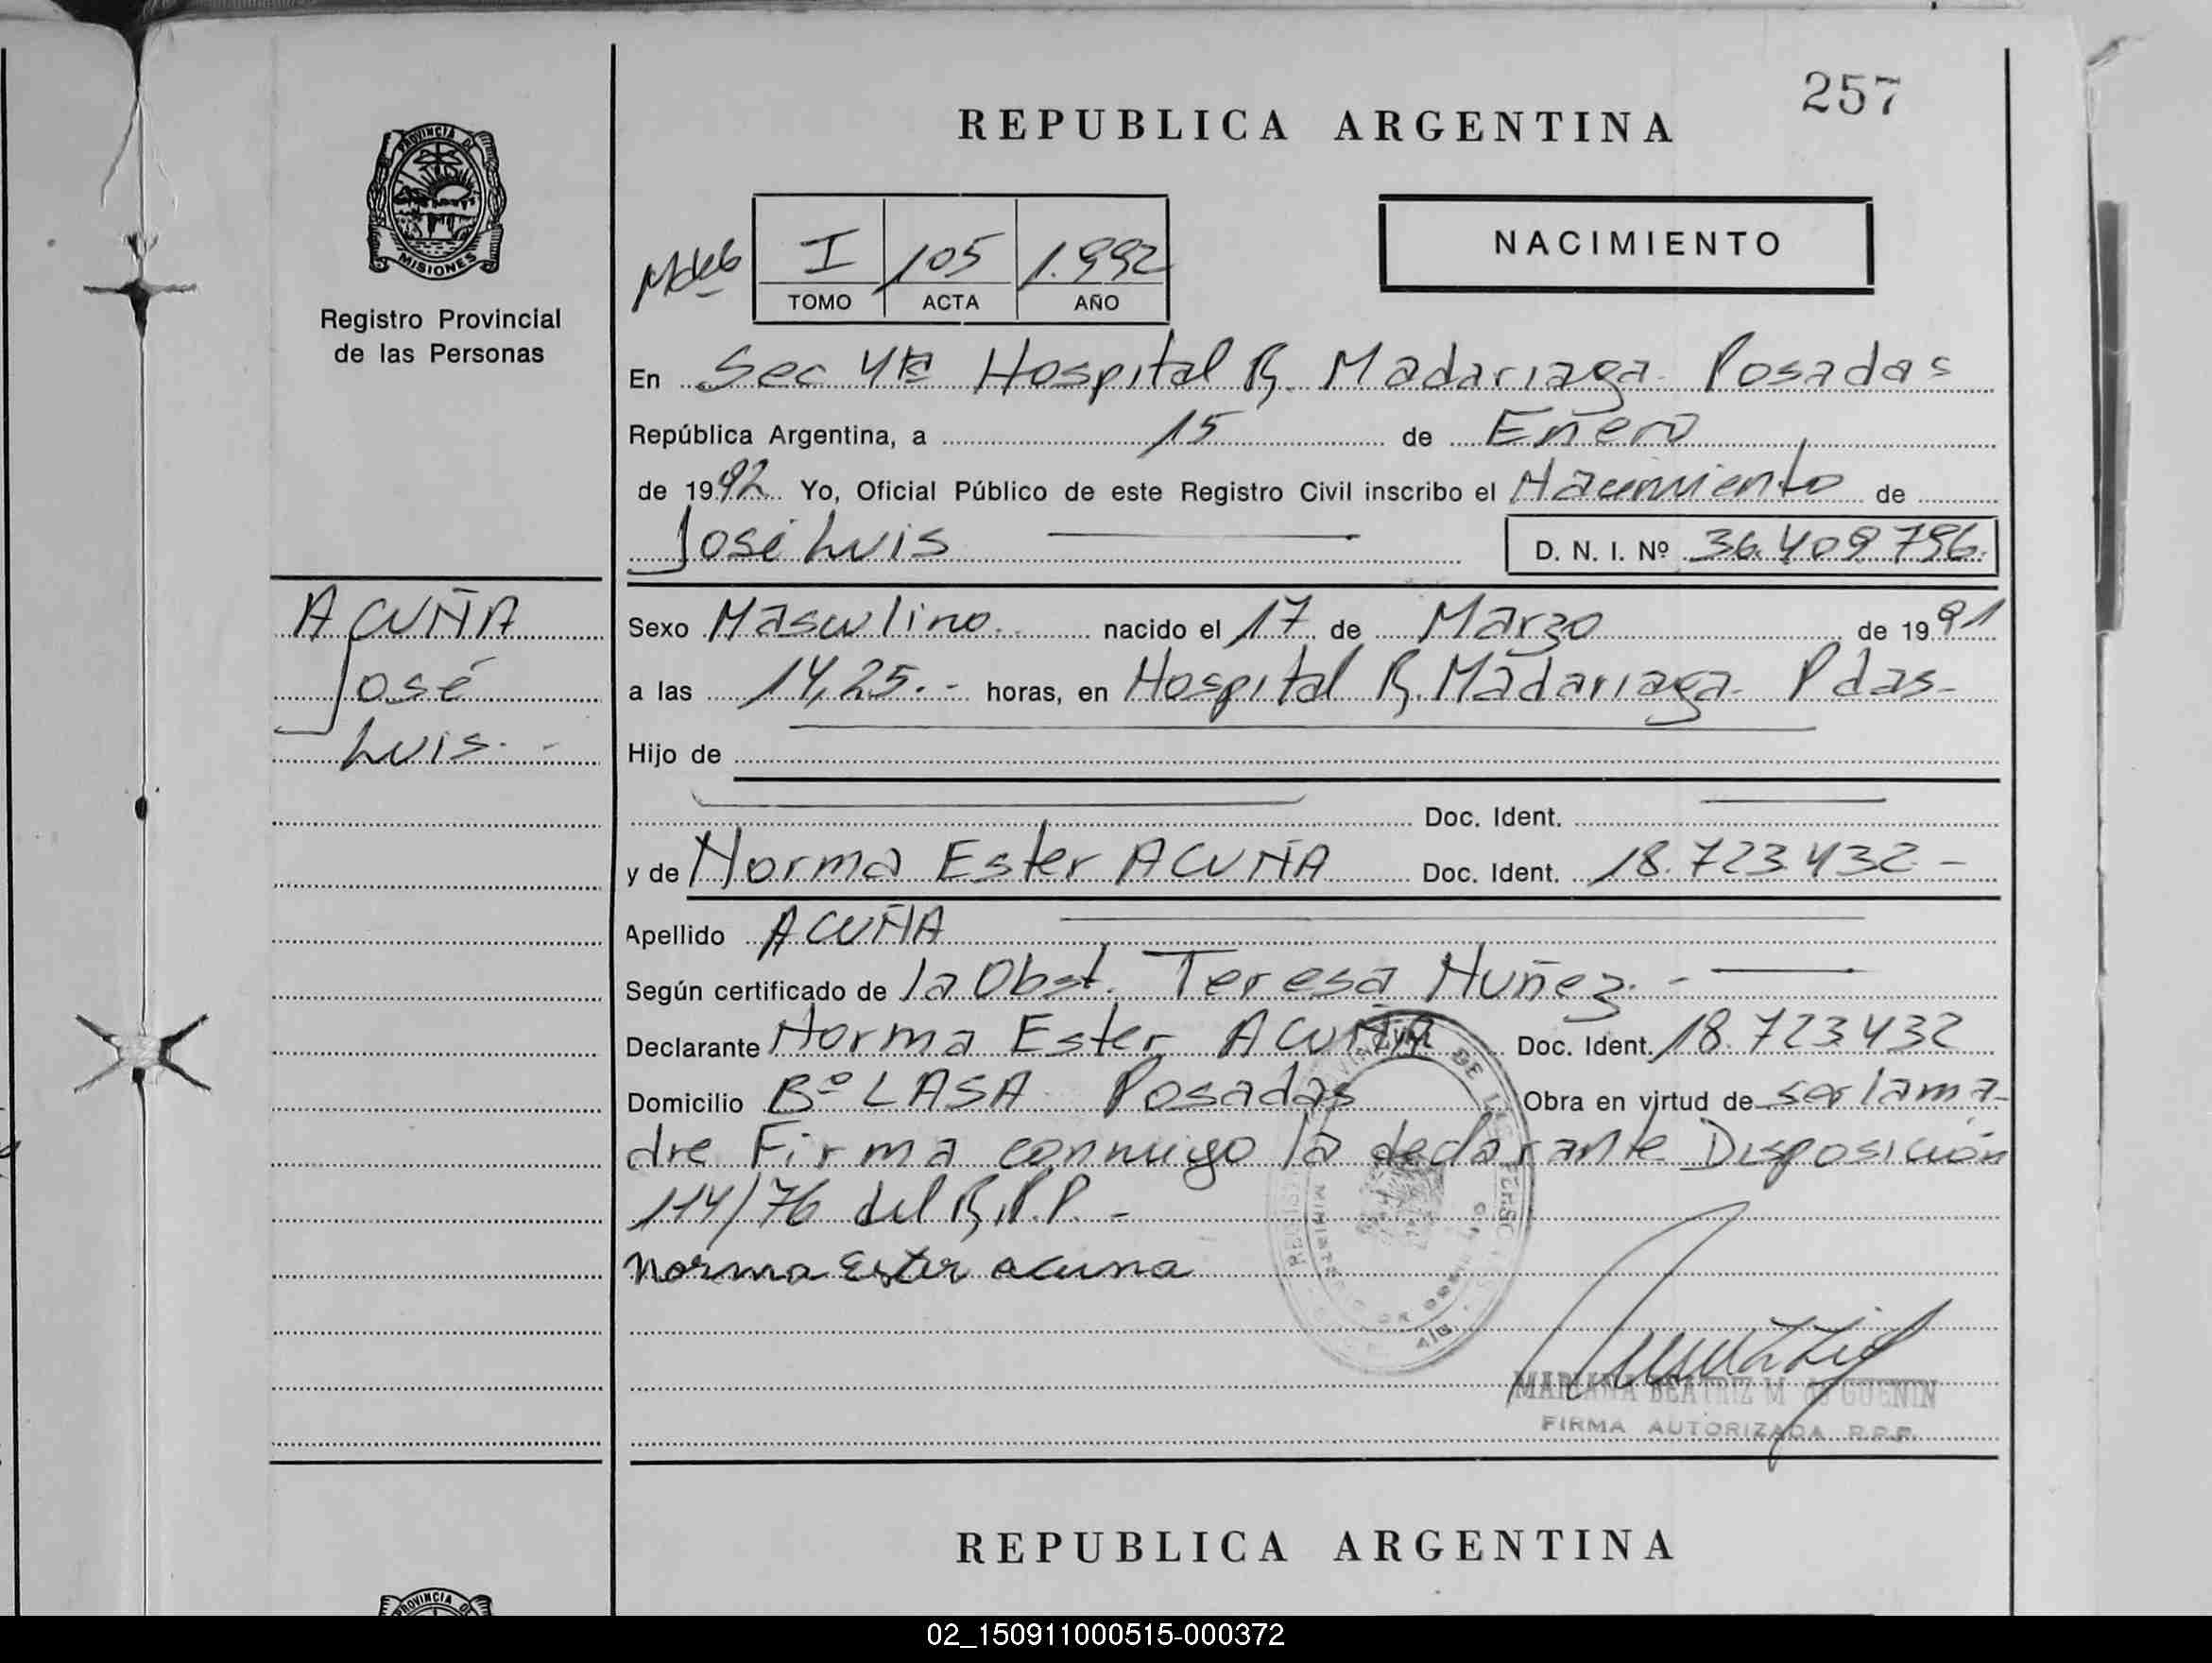 257
REPUBLICA ARGENTINA
PROVINCIA DE
MISIONES
Registro Provincial
de las Personas
I 105 1.992
TOMO ACTA AÑO
NACIMIENTO
En Sec 4ta Hospital R. Madariaga Posadas
República Argentina, a 15 de Enero
de 1992 Yo, Oficial Público de este Registro Civil inscribo el Nacimiento de
José Luis
D. N. I. Nº 36.409796.
ACUÑA
José
Luis. -
Sexo Masculino nacido el 17 de Marzo de 1991
a las 14,25.- horas, en Hospital R. Madariaga Pdas-
Hijo de
Doc. Ident.
y de Norma Ester ACUÑA Doc. Ident. 18.723432-
Apellido ACUÑA
Según certificado de la Obst. Teresa Nuñez.-
Declarante Norma Ester ACUÑA Doc. Ident. 18.723432
Domicilio Bº LASA Posadas Obra en virtud de ser la ma-
dre Firma conmigo la declarante Disposición
114/76 del R.P.P. -
Norma Ester acuna
MARIANA BEATRIZ M de GUENIN
FIRMA AUTORIZADA R.P.P.
REPUBLICA ARGENTINA
PROVINCIA DE
02_150911000515-000372